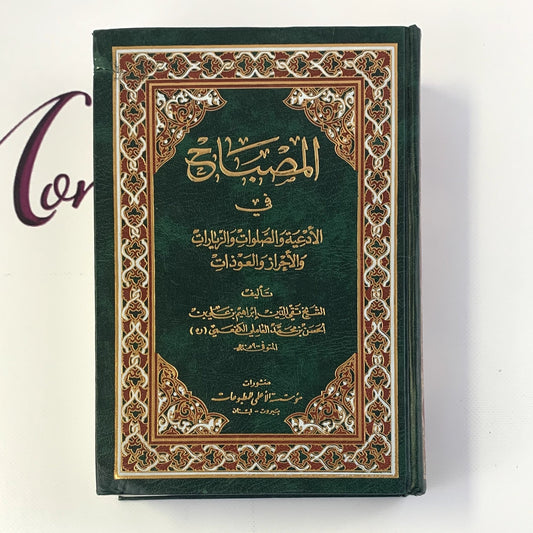 المصباح
في
الأدعية والصلوات والزيارات
والأحراز والعوذات
تأليف
الشيخ تقي الدين إبراهيم بن علي بن
الحسن بن محمد العاملي الكفعمي
منشورات
مؤسسة الأعلمي للمطبوعات
بيروت - لبنان